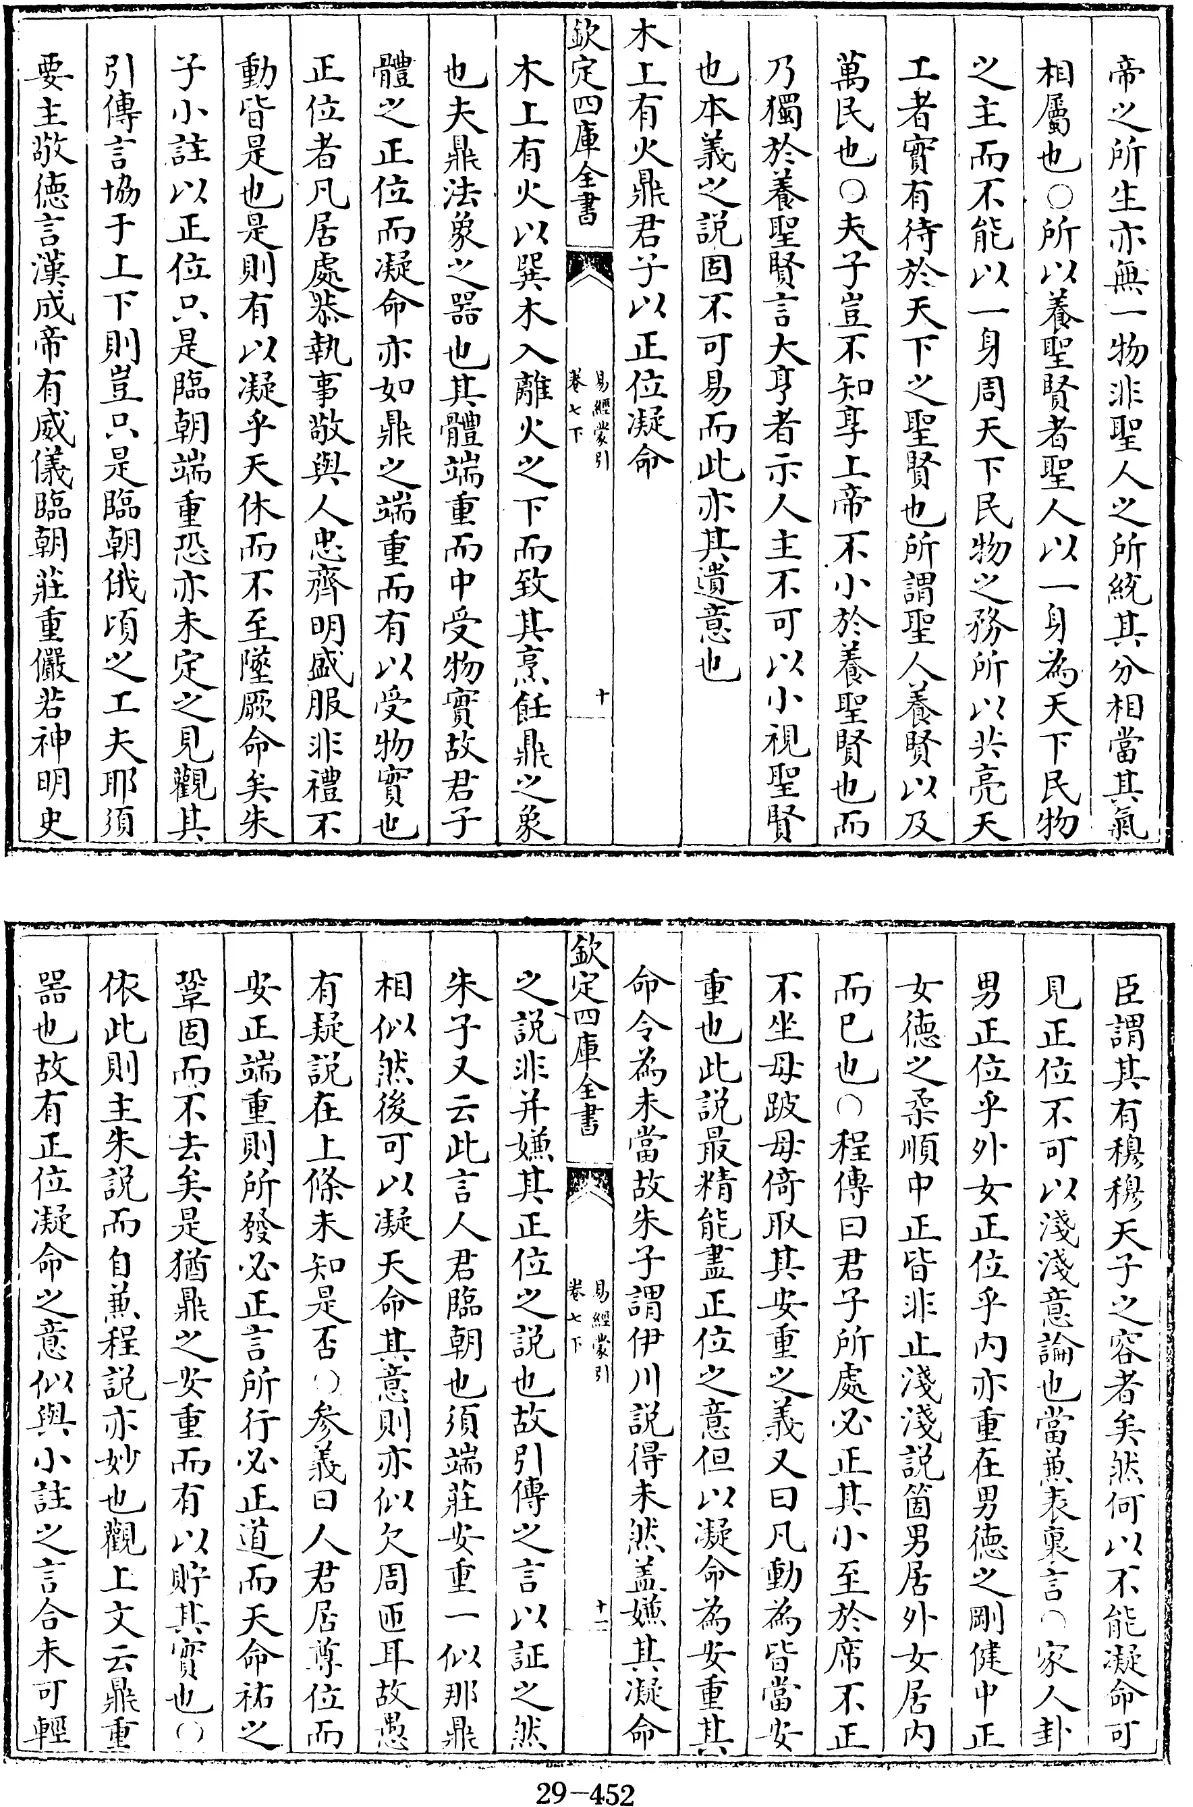 帝之所生亦無一物非聖人之所統其分相當其氣
相屬也○所以養聖賢者聖人以一身為天下民物
之主而不能以一身周天下民物之務所以共亮天
工者實有待於天下之聖賢也所謂聖人養賢以及
萬民也○夫子豈不知享上帝不小於養聖賢也而
乃獨於養聖賢言大亨者示人主不可以小視聖賢
也本義之說固不可易而此亦其遺意也
木上有火鼎君子以正位凝命
欽定四庫全書
易經蒙引
卷七下
十
木上有火以巽木入離火之下而致其烹飪鼎之象
也夫鼎法象之器也其體端重而中受物實故君子
體之正位而凝命亦如鼎之端重而有以受物實也
正位者凡居處恭執事敬與人忠齊明盛服非禮不
動皆是也是則有以凝乎天休而不至墜厥命矣朱
子小註以正位只是臨朝端重恐亦未定之見觀其
引傳言協于上下則豈只是臨朝俄頃之工夫耶須
要主敬德言漢成帝有威儀臨朝莊重儼若神明史
臣謂其有穆穆天子之容者矣然何以不能凝命可
見正位不可以淺淺意論也當兼表裏言○家人卦
男正位乎外女正位乎内亦重在男德之剛健中正
女德之柔順中正皆非止淺淺說箇男居外女居内
而已也○程傳曰君子所處必正其小至於席不正
不坐毋跛毋倚取其安重之義又曰凡動為皆當安
重也此說最精能盡正位之意但以凝命為安重其
命令為未當故朱子謂伊川說得未然盖嫌其凝命
欽定四庫全書
易經蒙引
卷七下
十一
之說非并嫌其正位之說也故引傳之言以証之然
朱子又云此言人君臨朝也須端莊安重一似那鼎
相似然後可以凝天命其意則亦似欠周匝耳故愚
有疑說在上條未知是否○參義曰人君居尊位而
安正端重則所發必正言所行必正道而天命祐之
鞏固而不去矣是猶鼎之安重而有以貯其實也○
依此則主朱說而自兼程說亦妙也觀上文云鼎重
器也故有正位凝命之意似與小註之言合未可輕
29-452